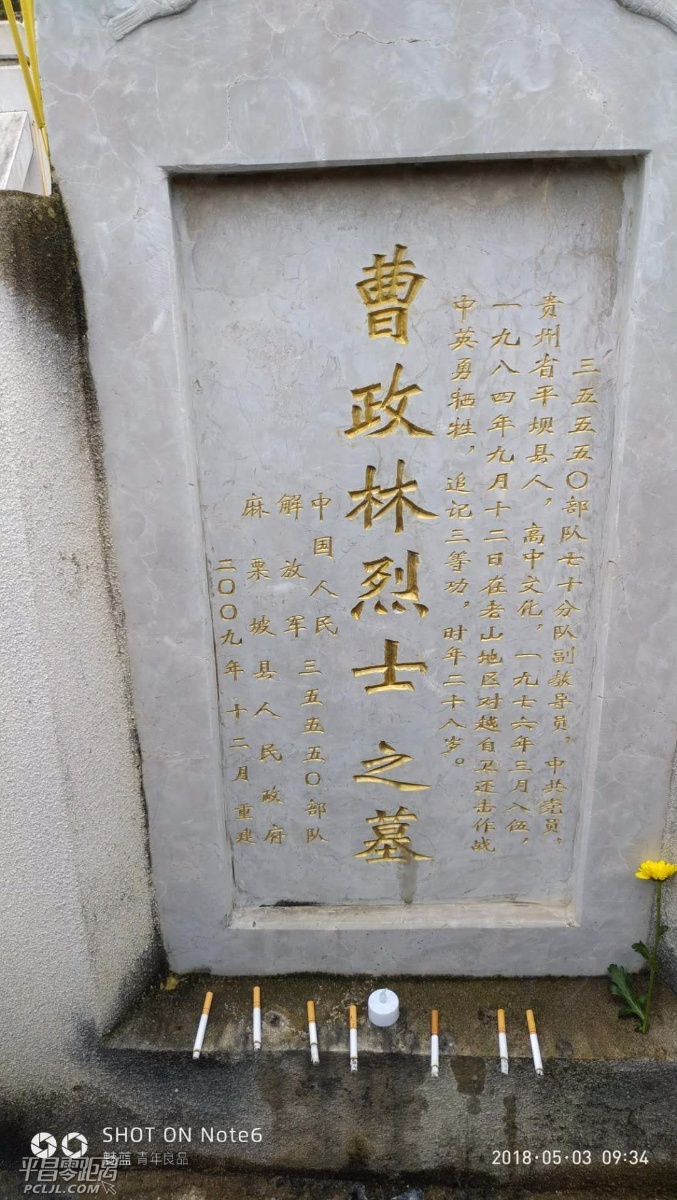 三五五五〇部队七十分队副教导员，中共党员，
贵州省平坝县人，高中文化，一九七六年三月入伍，
一九八四年九月十二日在老山地区对越自卫还击作战
中英勇牺牲，追记三等功，时年二十八岁。
曹政林烈士之墓
中国人民
解放军三五五五〇部队
麻栗坡县人民政府
二〇〇九年十二月重建
SHOT ON Note6
魅蓝 青年良品
2018·05·03 09:34
平昌零距离
PCLJL.COM